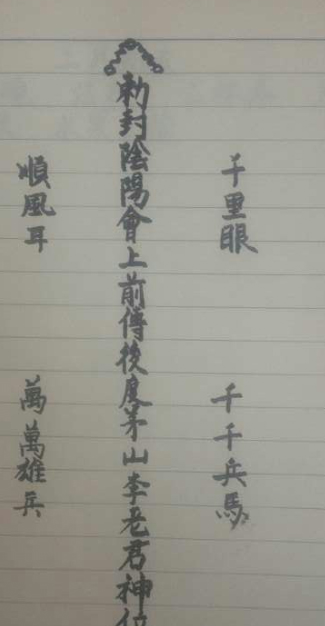 千里眼
千千兵馬
勅封陰陽會上前傳後度茅山李老君神位
順風耳
萬萬雄兵